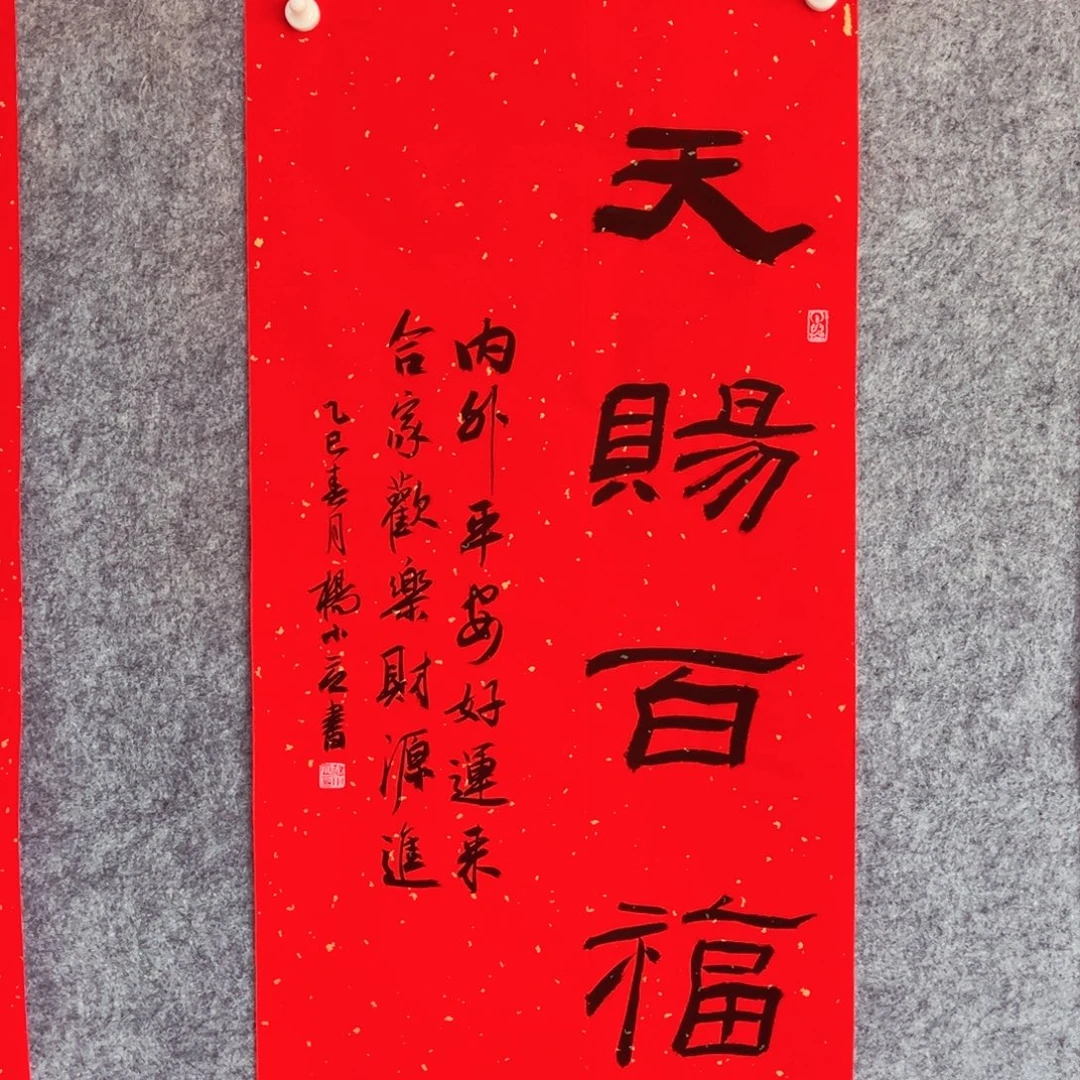 天賜百福
内外平安好運来
合家歡樂財源進
乙巳春月楊小立書